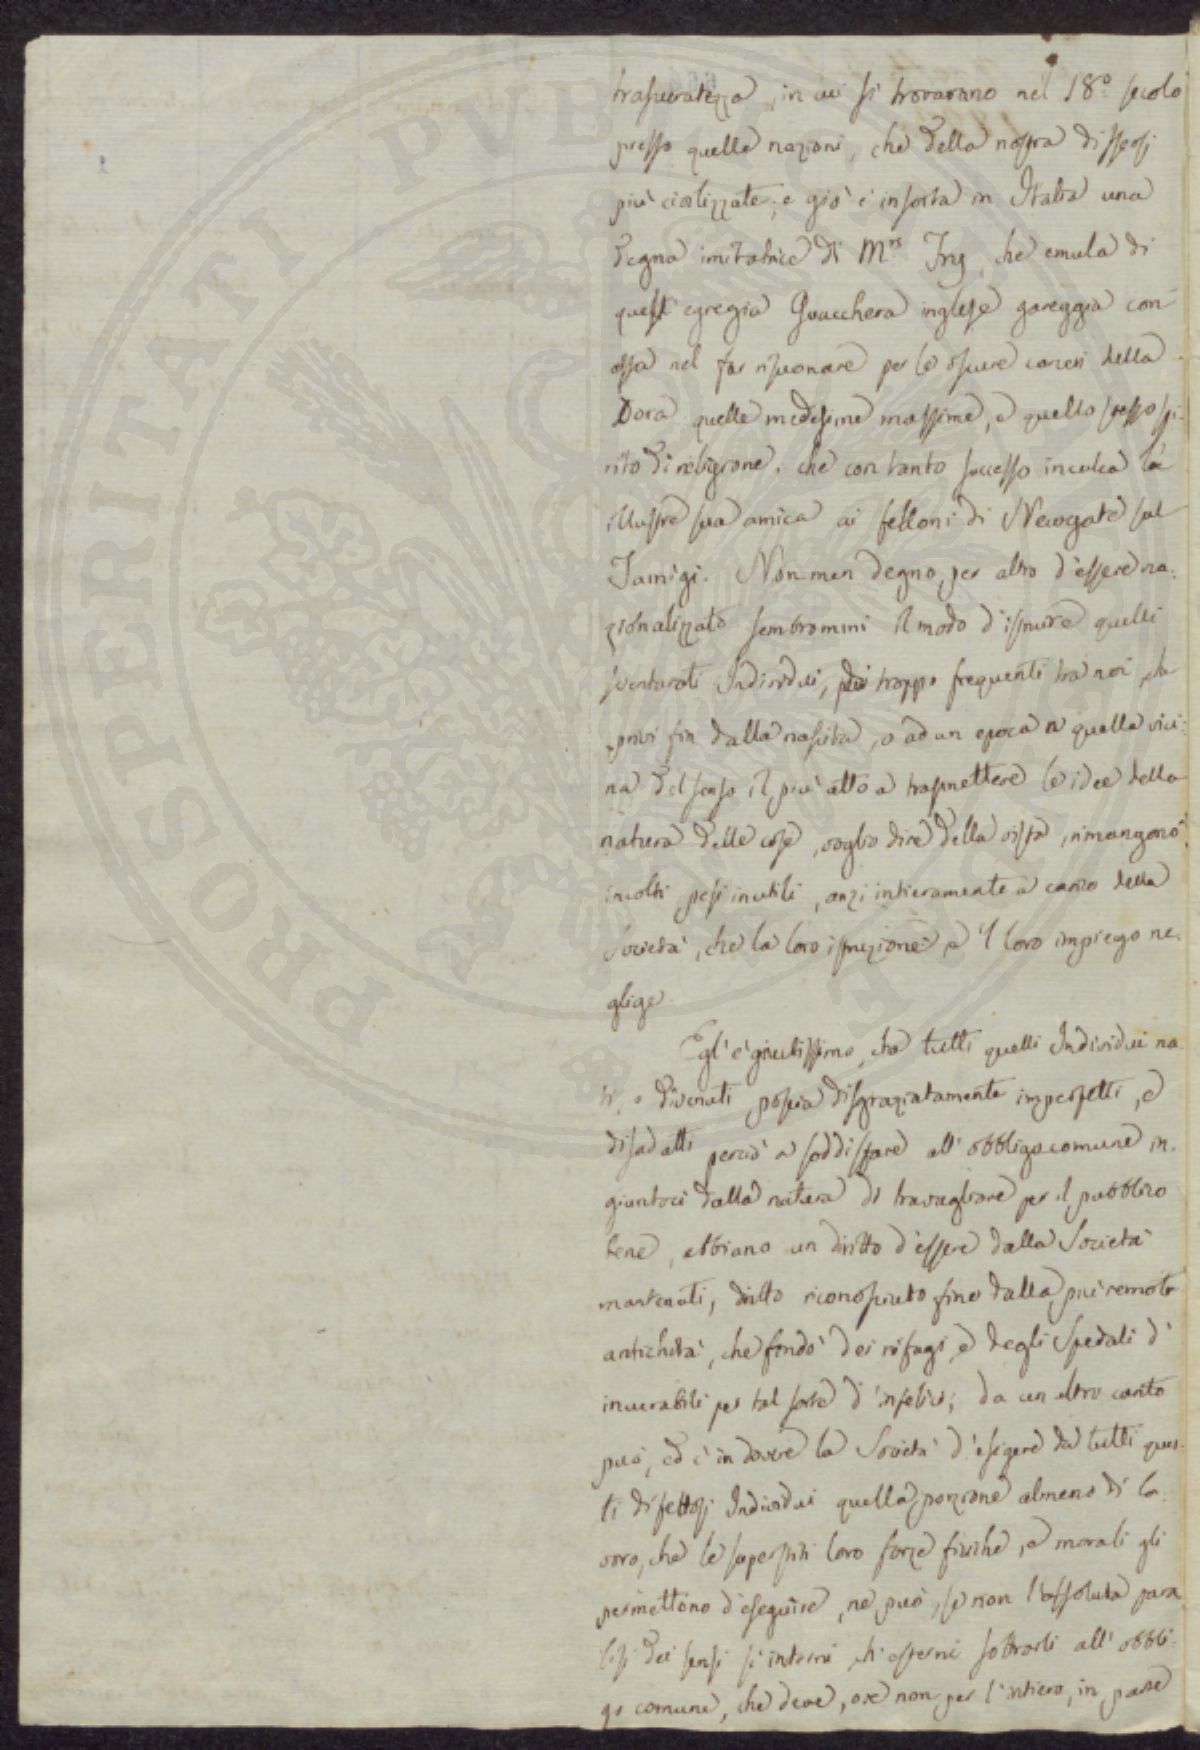 trascuratezza, in cui si trovarano nel 18.º secolo
presso quelle nazioni, che della nostra dissersi
più civilizzate; e già è insorta in Italia una
degna imitatrice di M.rs Fry, che emula di
quest' egregia Quacchera inglese gareggia con
essa nel far risuonare per le oscure carceri della
Dora quelle medesime massime, e quello stesso spi-
rito di religione, che con tanto successo inculca la
illustre sua amica ai felloni di Newgate sul
Tamigi. Non men degno per altro d'essere na-
zionalizzato sembrommi il modo d'istruire quelli
sventurati Individui, più troppo frequenti tra noi, che
privi fin dalla nascita, o ad un epoca a quella vici-
na del senso il più atto a trasmettere le idee della
natura delle cose, voglio dire della vista, rimangono
incolti pesi inutili, anzi intieramente a carico della
Società, che la loro istruzione, e 'l loro impiego ne-
glige.
Egl' è giustissimo, che tutti quelli Individui na-
ti, o divenuti poscia disgraziatamente imperfetti, e
disadatti perciò a soddisfare all' obbligo comune in-
giuntoci dalla natura di travagliare per il pubblico
bene, abbiano un diritto d'essere dalla Società
mantenuti, diritto riconosciuto fino dalla più remota
antichità, che fondò dei rifugi, e degli Spedali d'
incurabili per tal sorte d'infelici; da un altro canto
può, ed è in dovere la Società d'esigere da tutti ques-
ti difettosi Individui quella porzione almeno di la-
voro, che le superstiti loro forze fisiche, e morali gli
permettono d'eseguire, ne può, se non l'assoluta para
lisi dei sensi sì interni ch' esterni sottrarli all' obbli-
go comune, che deve, ove non per l'intiero, in parte
PROSPERITATI PUBLICAE